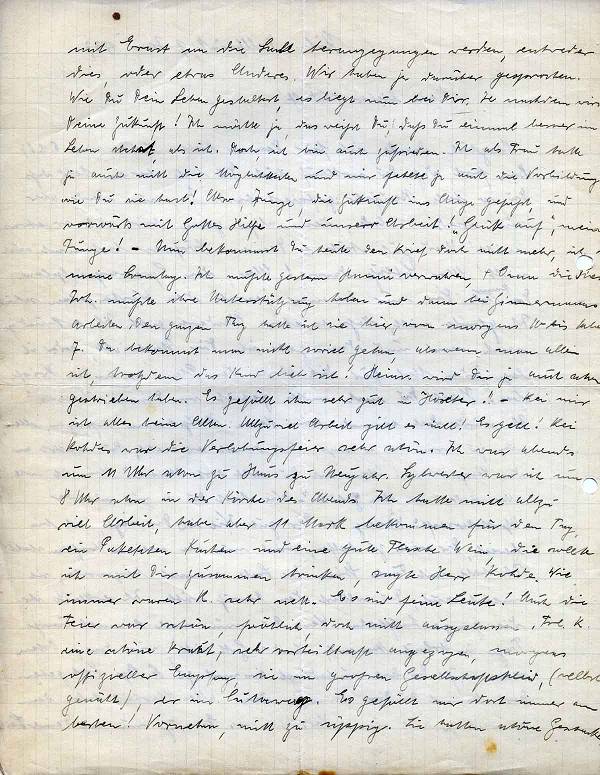 mit Ernst an die Sache herangegangen werden, entweder
dies, oder etwas Anderes. Wir haben ja darüber gesprochen.
Wie Du Dein Leben gestaltest, es liegt nun bei Dir. Je nachdem wird
Deine Zukunft! Ich möchte ja, das weißt Du, daß Du einmal besser im
Leben stehst, als ich. Doch, ich bin auch zufrieden. Ich als Frau hatte
ja auch nicht die Möglichkeiten und mir fehlte ja auch die Vorbildung
wie Du sie hast! Also Junge, die Zukunft ins Auge gefaßt, und
vorwärts mit Gottes Hilfe und unserer Arbeit! "Glück auf", mein
Junge! - Nun bekommst Du heute den Brief doch nicht mehr, ist
meine Ich mußte gestern verwahren, + Oma die
mußte ihre Unterstützung holen und dann bei Zimmermanns
arbeiten, den ganzen Tag hatte ich sie hier, von morgens 10 bis
7. Da bekommt man nicht soviel getan, als wenn man allein
ist, trotzdem das Kind lieb ist! Heinr. wird Dir ja auch schon
geschrieben haben. Es gefällt ihm sehr gut in Höxter! - Bei mir
ist alles beim Alten. Allzuviel Arbeit gibt es nicht! Es geht! Bei
Kohdes war die Verlobungsfeier sehr schön. Ich war abends
um 11 Uhr schon zu Haus zu Neujahr. Sylvester war ich um
8 Uhr schon in der Kirche des Abends. Ich hatte nicht allzu
viel Arbeit, habe aber 11 Mark bekommen für den Tag,
ein Paketchen Kuchen und eine gute Flasche Wein, die sollte
ich mit Dir zusammen trinken, sagte Herr Kohde. Wie
immer waren K. sehr nett. Es sind feine Leute! Auch die
Feier war schön, fröhlich, doch nicht ausgelassen. Frl. K.
eine schöne Braut, sehr vorteilhaft angezogen, morgens
offizieller Empfang, sie im großen Gesellschaftskleid, (selbst
genäht), er im Es gefällt mir dort immer am
besten! Vornehm, nicht zu üppig. Sie hatten schöne